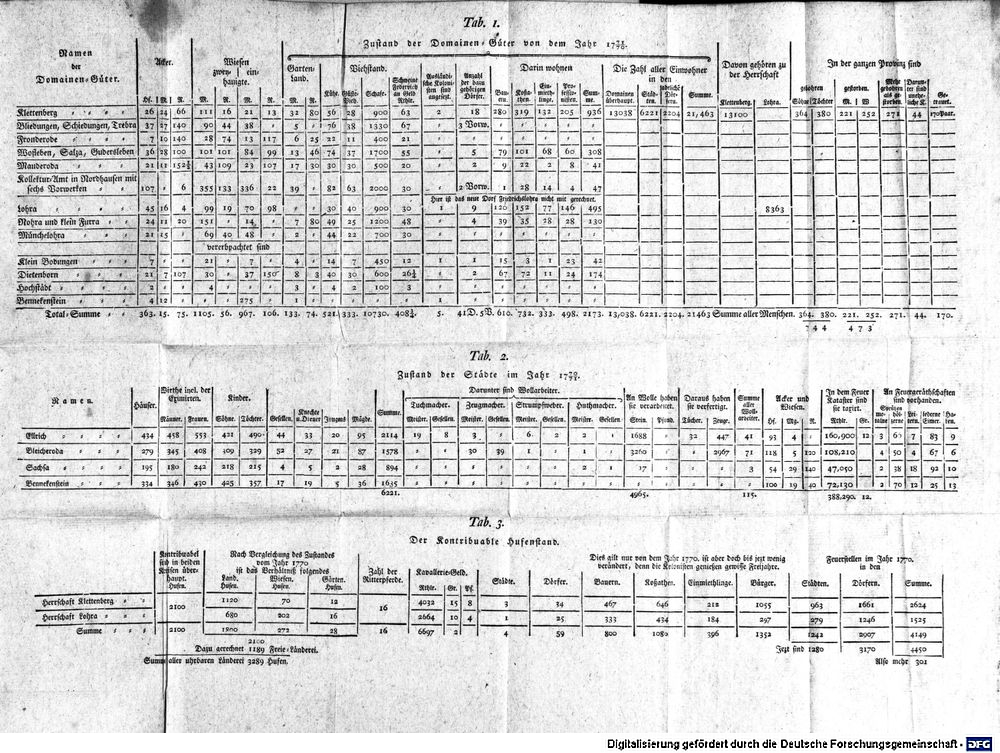 Tab. 1.
Zustand der Domainen-Güter von dem Jahr
Namen der Domainen-Güter. Äker. Wiesen zwey- ein- hauigte. Garten-Land. Viehstand. Darin wohnen Die Zahl aller Einwohner in den Davon gehören zu der Herrschaft In der ganzen Provinz sind
Hf. M. R. M. R. M. R. M. R. Kühe. Schafe. Summe. Städten. Summe. Klettenberg. Lohra. Söhne Töchter M. W.
Klettenberg 26 24 66 111 16 21 13 32 80 56 28 900 63 2 18 280 319 132 205 936 13038 6221 2204 21,463 13100 364 380 221 252 271 44 170 Paar.
Bliedungen, Schiedungen, Trebra 37 27 140 90 44 38 5 76 38 1330 67 3 Vorw.
Fronderode 7 10 140 28 74 13 117 6 25 22 11 400 21
Wofleben, Salza, Gudersleben 36 28 100 101 101 84 99 13 46 74 37 1700 55 5 79 101 68 60 308
Manderoda 21 11 152½ 43 109 23 107 17 30 30 30 500 20 2 9 22 2 8 41
Kollektur-Amt in Nordhausen mit
sechs Vorwerken 107 6 355 133 336 22 39 82 63 2000 30 2 Vorw. 1 28 14 4 47
Hier ist das neue Dorf Friedrichslohra nicht mit gerechnet.
Lohra 45 16 4 99 19 70 98 30 40 900 30 1 9 120 152 77 146 495 8363
Rohra und klein Furra 24 11 20 151 14 7 80 49 25 1200 48 4 39 35 28 28 130
Münchelohra 21 15 69 40 48 2 44 22 700 30
vererbpachtet sind
Klein Bodungen 7 21 7 4 14 7 450 12 1 1 15 3 1 23 42
Dietenborn 21 7 107 30 37 150 8 3 40 30 600 26¼ 2 67 72 11 24 174
Hochstädt 2 4 3 4 2 100 3
Bennekenstein 4 12 275 1 1
Total-Summe 363. 15. 75. 1105. 56. 967. 106. 133. 74. 521. 333. 10730. 408¾. 5. 41 D. 5 V. 610. 732. 333. 498. 2173. 13,038. 6221. 2204. 21463 Summe aller Menschen. 364. 380. 221. 252. 271. 44. 170.
744 473
Tab. 2.
Zustand der Städte im Jahr
Namen. Häuser. Wirthe incl. der Eximirten. Kinder. Summe. Darunter sind Wollarbeiter. An Wolle haben sie verarbeitet. Daraus haben sie verfertigt. Summe aller Wollarbeiter. Acker und Wiesen. In dem Feuer Kataster sind sie taxirt. An Feuergeräthschaften sind vorhanden.
Tuchmacher. Zeugmacher. Strumpfweber. Huthmacher.
Männer. Frauen. Söhne. Töchter. Gesellen. Knechte u. Diener Jungens Mägde. Meister. Gesellen. Meister. Gesellen. Meister. Gesellen. Meister. Gesellen. Stein. Pfund. Tücher. Zeuge. Hf. Mg. R. Rthlr. Gr.
Ellrich 434 458 553 421 490 44 33 20 95 2114 19 8 3 6 2 2 1688 32 447 41 93 4 160,900 12 3 60 7 83 9
Bleicheroda 279 345 408 309 329 52 27 21 87 1578 30 39 1 1 3260 2967 71 118 5 120 108,210 4 50 4 67 6
Sachsa 195 180 242 218 215 4 5 2 28 894 2 1 17 3 54 29 140 47,050 2 38 18 92 10
Bennekenstein 334 346 430 425 357 17 19 5 36 1635 100 19 40 72,130 2 70 12 25 13
6221. 4965. 115. 388,290. 12.
Tab. 3.
Der Kontribuable Hufenstand.
Kontribuabel sind in beiden Kreisen überhaupt. Hufen. Nach Vergleichung des Zustandes vom Jahr 1770 ist das Verhältniß folgendes Zahl der Ritterpferde. Kavallerie-Geld. Dies gilt nur von dem Jahr 1770. ist aber doch bis jetzt wenig verändert, denn die Kolonisten geniessen gewisse Freijahre. Feuerstellen im Jahr 1770. in den
Land. Hufen. Wiesen. Hufen. Gärten. Hufen. Rthlr. Gr. Pf. Städte. Dörfer. Bauern. Koßathen. Einmiethlinge. Bürger. Städten. Dörfern. Summe.
Herrschaft Klettenberg 2100 1120 70 12 16 4032 15 8 3 34 467 646 212 1055 963 1661 2624
Herrschaft Lohra 680 202 16 2664 10 4 1 25 333 434 184 297 279 1246 1525
Summe 2100 1800 272 28 16 6697 2 4 59 800 1080 396 1352 1242 2907 4149
2100
Dazu gerechnet 1189 Freie-Länderei. Jezt sind 1280 3170 4450
Summa aller uhrbaren Länderei 3289 Hufen. Also mehr 301
Digitalisierung gefördert durch die Deutsche Forschungsgemeinschaft - DFG